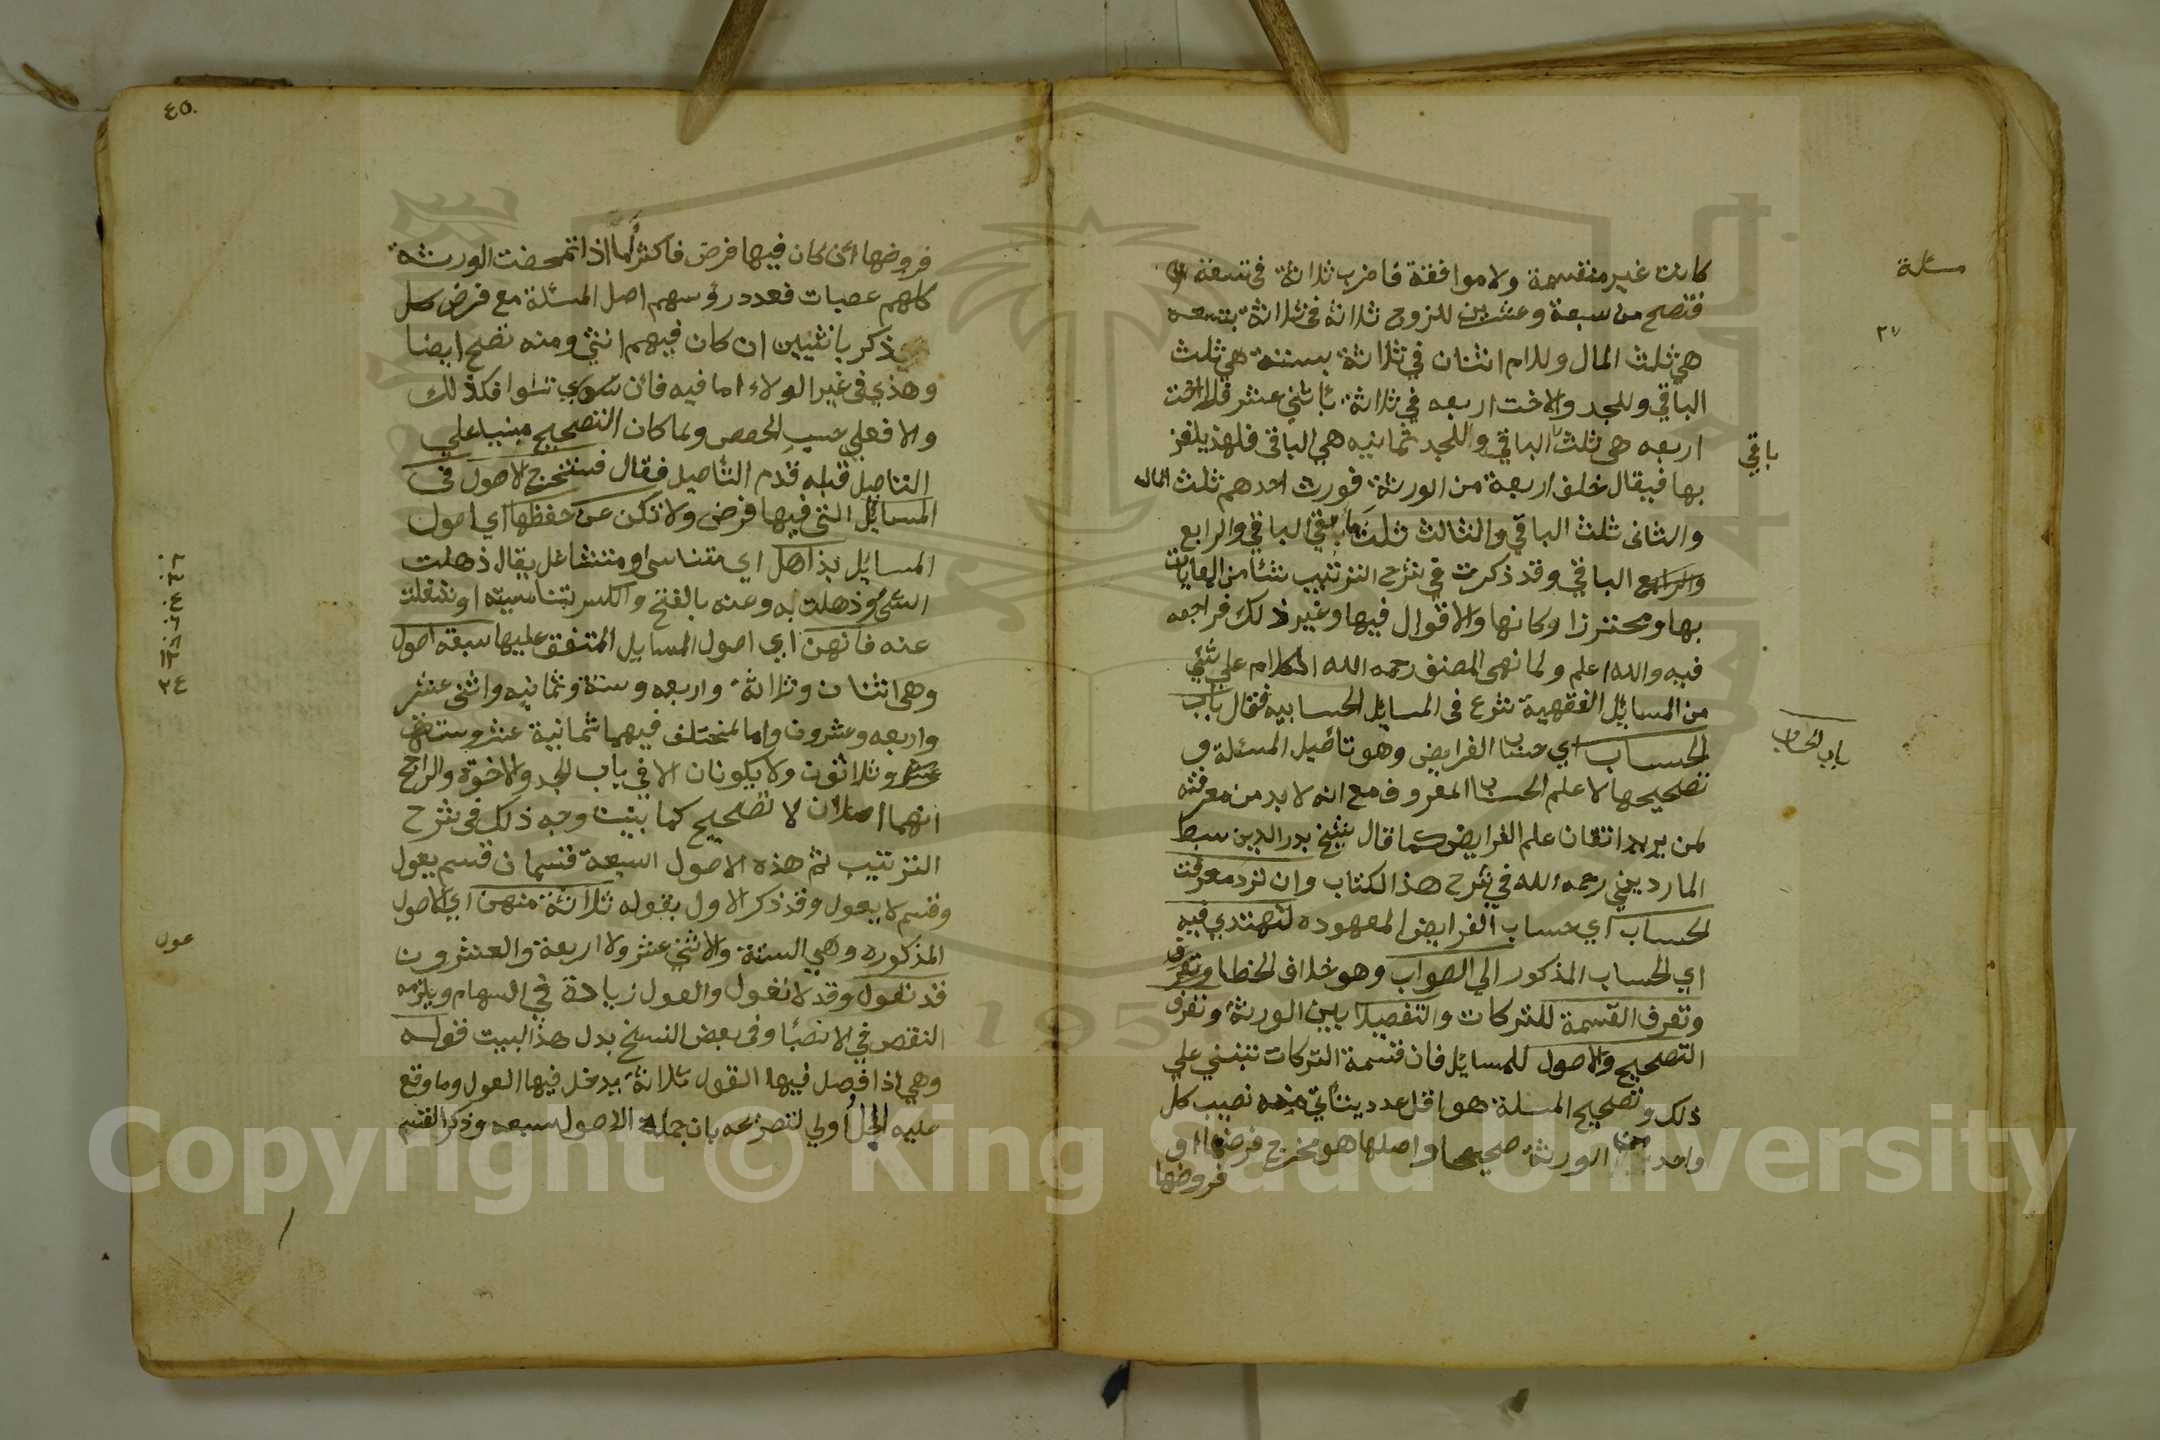 مسئلة
كانت غير منقسمة ولا موافقة فاضرب ثلاثة في تسعة
فتصح من سبعة وعشرين للزوج ثلاثة في ثلاثة بتسعه
٢٧
هي ثلث المال وللام اثنان في ثلاثة بستة هي ثلث
الباقي وللجد والاخت اربعه في ثلاثة باثني عشر فللاخت
اربعه هي ثلث الباقي وللجد ثمانيه هي الباقي فلهذي يلغز
باقي
بها فيقال خلف اربعة من الورثة فورث احدهم ثلث المال
والثاني ثلث الباقي والثالث ثلث ما بقي الباقي والرابع
والرابع الباقي وقد ذكرت في شرح الترتيب شئا من المعاياة
بها ومحترزا وكانها والاقوال فيها وغير ذلك فراجعه
فيه والله اعلم ولما نهى المصنف رحمه الله الكلام على شئي
من المسايل الفقهية شرع في المسايل الحسابيه فقال باب
باب الحساب
الحساب اي حساب الفرايض وهو تاصيل المسئلة و
تصحيحها لا علم الحساب المعروف مع انه لا بد من معرفته
لمن يريد اتقان علم الفرايض كما قال شيخ بدر الدين سبط
المارديني رحمه الله في شرح هذا الكتاب وان ترد معرفت
الحساب اي حساب الفرايض المعهوده لتهتدي فيه
اي الحساب المذكور الي الصواب وهو خلاف الخطا وتعرف
وتعرف القسمة للتركات والتفصيلا بين الورثة وتعرف
التصحيح والاصول للمسايل فان قسمة التركات تنبني علي
ذلك وتصحيح المسلة هو اقل عدد يتاتي منه نصيب كل
واحد من الورثة صحيحا واصلها هو مخرج فرضها او
فروضها
٤٥
فروضها ان كان فيها فرض فاكثر اما اذا تمحضت الورثة
كلهم عصبات فعدد رؤسهم اصل المسئلة مع فرض كل
ذكر بانثيين ان كان فيهم انثي ومنه تصح ايضا
وهذي في غير الولاء اما فيه فان تسوي تسوا فكذلك
والا فعلي حسب الحصص ولما كان التصحيح مبنيا علي
التاصيل قبله قدم التاصيل فقال فستخرج الاصول في
المسايل التي فيها فرض ولا تكن عن حفظها اي اصول
المسايل بذاهل اي متناسي او متشاغل يقال ذهلت
الشئ وذهلت به وعنه بالفتح والكسر تناسيته او شغلت
عنه فانهن اي اصول المسايل المتفق عليها سبعه اصول
وهي اثنان وثلاثة واربعه وستة وثمانيه واثني عشر
٢
٣
٤
٦
٨
١٢
٢٤
واربعه وعشرون واما المختلف فيهما ثمانية عشر وستة
عشر وثلاثون ولا يكونان الا في باب الجد والاخوة والراجح
انهما اصلان لا تصحيح كما بينت وجه ذلك في شرح
الترتيب ثم هذه الاصول السبعة قسمان قسم يعول
وقسم لا يعول وقد ذكر الاول بقوله ثلاثة منهن اي الاصول
المذكوره وهي الستة والاثني عشر ولا اربعة والعشرون
عول
قد تعول وقد لا تعول والعول زيادة في السهام ويلزمه
النقص في الانصبا وفي بعض النسخ بدل هذا البيت قوله
وهي اذا فصل فيها القول ثلاثة يدخل فيها العول وما وقع
عليه الحل اولي لتصريحه بان جملة الاصول سبعه وذكر القسم
Copyright © King Saud University